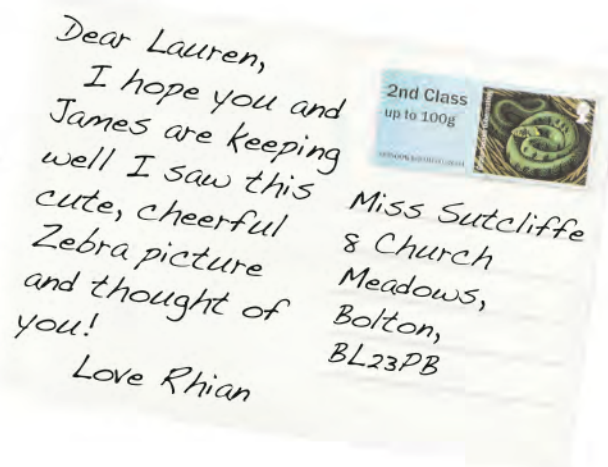 Dear Lauren,
I hope you and
James are keeping
well I saw this
cute, cheerful
Zebra picture
and thought of
you!
Love Rhian
2nd Class
up to 100g
Miss Sutcliffe
8 Church
Meadows,
Bolton,
BL23PB